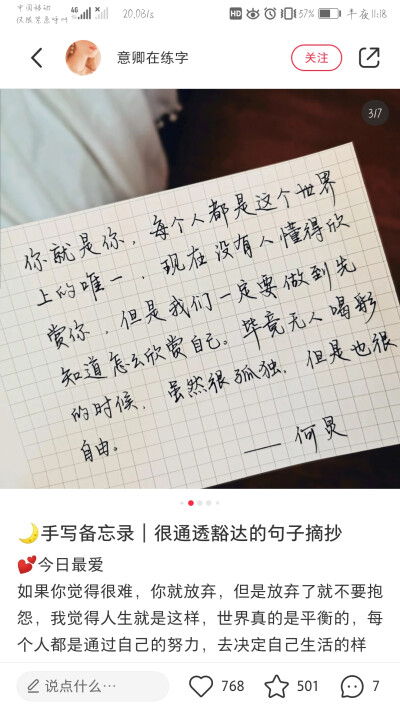 中国移动
仅限紧急呼叫
4G
20.03/s
HD
57%
半夜11:18
意卿在练字
关注
3/7
你就是你，每个人都是这个世界
上的唯一，现在没有人懂得欣
赏你，但是我们一定要做到先
知道怎么欣赏自己。毕竟无人喝彩
的时候，虽然很孤独，但是也很
自由。
—— 何炅
🌙手写备忘录｜很通透豁达的句子摘抄
💕今日最爱
如果你觉得很难，你就放弃，但是放弃了就不要抱
怨，我觉得人生就是这样，世界真的是平衡的，每
个人都是通过自己的努力，去决定自己生活的样
说点什么…
768
501
7